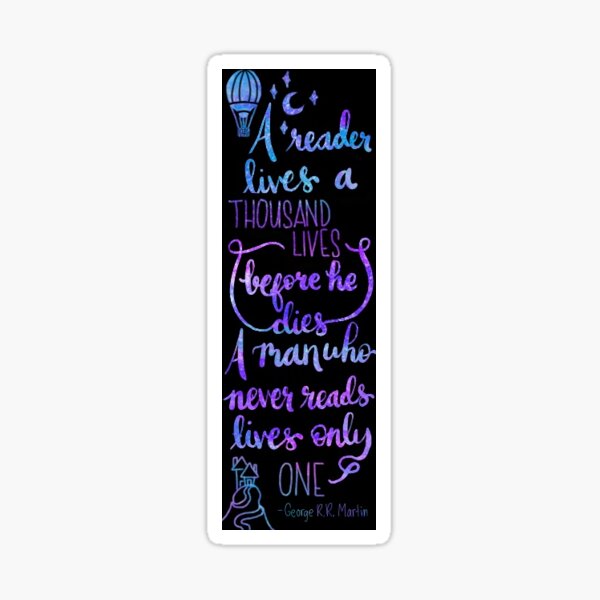 A reader
lives a
THOUSAND
LIVES
before he
dies
A man who
never reads
lives only
ONE
-George R.R. Martin